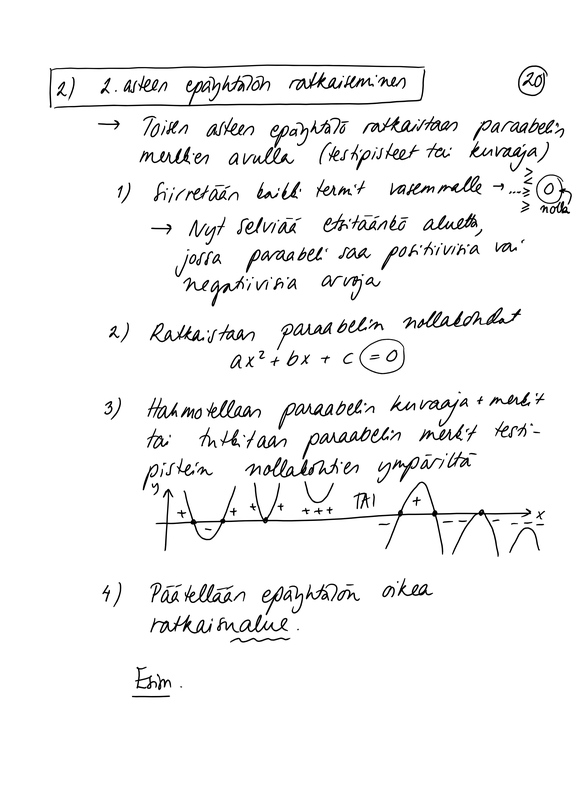 2) 2. asteen epäyhtälön ratkaiseminen
20
→ Toisen asteen epäyhtälö ratkaistaan paraabelin
merkkien avulla (testipisteet tai kuvaaja)
1) Siirretään kaikki termit vasemmalle → ... > < ≥ ≥ 0
nolla
→ Nyt selviää etsitäänkö aluetta,
jossa paraabeli saa positiivisia vai
negatiivisia arvoja
2) Ratkaistaan paraabelin nollakohdat
ax² + bx + c = 0
3) Hahmotellaan paraabelin kuvaaja + merkit
tai tutkitaan paraabelin merkit testi-
pistein nollakohtien ympäriltä
y + - + + + + + + TAI - + - - - - - - - - x
4) Päätellään epäyhtälön oikea
ratkaisualue.
Esim.